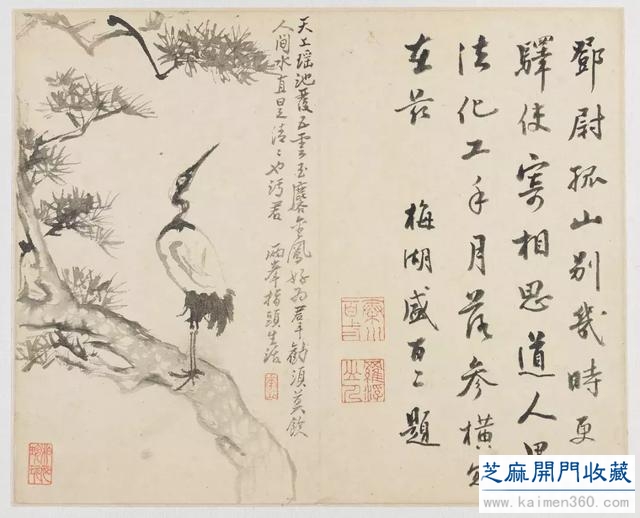 鄧尉孤山别幾時更
驛使寄相思道人
法化工手月落參橫
在茲 梅湖盛百二題
天上瑶池覆五雲玉麐金鳳好為君不勸須莫飲
人间水直是清〻也污君 兩峯指頭生活
芝麻開門收藏
www.kaimen360.com